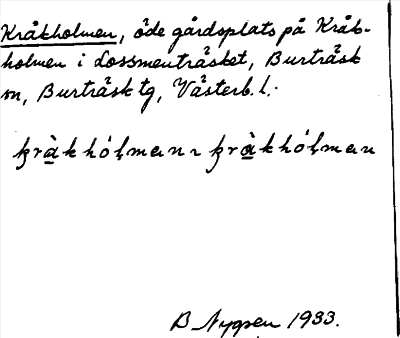 Kråkholmen, öde gårdsplats på Kråk-
holmen i Lossmenträsket, Burträsk
sn, Burträsk tg, Västerb. l.
kràkhólmann kràkhólman
B Nygren 1933.